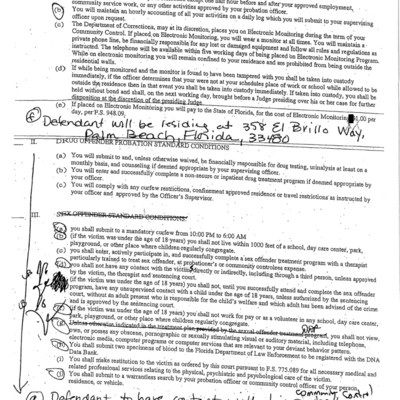 community service work, or any other activities approved by your probation officer.
(b) You will maintain an hourly accounting of all your activities on a daily log which you will submit to your supervising
officer upon request.
(c) The Department of Corrections, may at its discretion, places you on Electronic Monitoring during the term of your
Community Control. If placed on Electronic Monitoring, you will wear a monitor at all times. You will maintain a
private phone line, be financially responsible for any lost or damaged equipment and follow all rules and regulations as
instructed. The telephone will be available within five working days of being placed on Electronic Monitoring Program.
While on electronic monitoring you will remain confined to your residence and are prohibited from being outside the
residential walls.
(d) If while being monitored and the monitor is found to have been tampered with you shall be taken into custody
immediately, if the officer determines that your were not at your schedules place of work or school while allowed to be
outside the residence then in that event you shall be taken into custody immediately. If taken into custody, you shall be
held without bond and shall, on the next working day, brought before a Judge presiding over his or her case for further
disposition at the discretion of the presiding Judge.
(e) If placed on Electronic Monitoring you will pay to the State of Florida, for the cost of Electronic Monitoring .00 per
day, per F.S. 948.09,
(f) Defendant will be residing at 358 El Brillo Way,
Palm Beach, Florida, 33480
II. DRUG OFFENDER PROBATION STANDARD CONDITIONS
(a) You will submit to and, unless otherwise waived, be financially responsible for drug testing, urinalysis at least on a
monthly basis, and counseling if deemed appropriate by your supervising officers.
(b) You will enter and successfully complete a non-secure or inpatient drug treatment program if deemed appropriate by
your officer.
(c) You will comply with any curfew restrictions, confinement approved residence or travel restrictions as instructed by
your officer and approved by the Officer's Supervisor.
III. SEX OFFENDER STANDARD CONDITIONS
(a) you shall submit to a mandatory curfew from 10:00 PM to 6:00 AM
(b) (if the victim was under the age of 18 years) you shall not live within 1000 feet of a school, day care center, park,
playground, or other place where children regularly congregate.
(c) you shall enter, actively participate in, and successfully complete a sex offender treatment program with a therapist
particularly trained to treat sex offender, at probationer's or community controlees expense.
(d) you shall not have any contact with the victim, directly or indirectly, including through a third person, unless approved
by the victim, the therapist and the sentencing court.
(e) (if the victim was under the age of 18 years) you shall not, until you successfully attend and complete the sex offender
program, have any unsupervised contact with a child under the age of 18 years, unless authorized by the sentencing
court, without an adult present who is responsible for the child's welfare and which adult has been advised of the crime
and is approved by the sentencing court.
(f) (if the victim was under the age of 18 years) you shall not work for pay or as a volunteer in any school, day care center,
park, playground, or other place where children regularly congregate.
(g) Unless otherwise indicated in the treatment plan provided by the sexual offender treatment program, you shall not view,
own or possess any obscene, pornographic or sexually stimulating visual or auditory material, including telephone,
electronic media, computer programs or computer services that are relevant to your deviant behavior pattern.
(h) You shall submit two specimens of blood to the Florida Department of Law Enforcement to be registered with the DNA
Data Bank.
(i) You shall make restitution to the victim as ordered by this court pursuant to F.S. 775.089 for all necessary medical and
related professional services relating to the physical, psychiatric and psychological care of the victim.
(j) You shall submit to a warrantless search by your probation officer or community control officer of your person,
residence, or vehicle.
community control